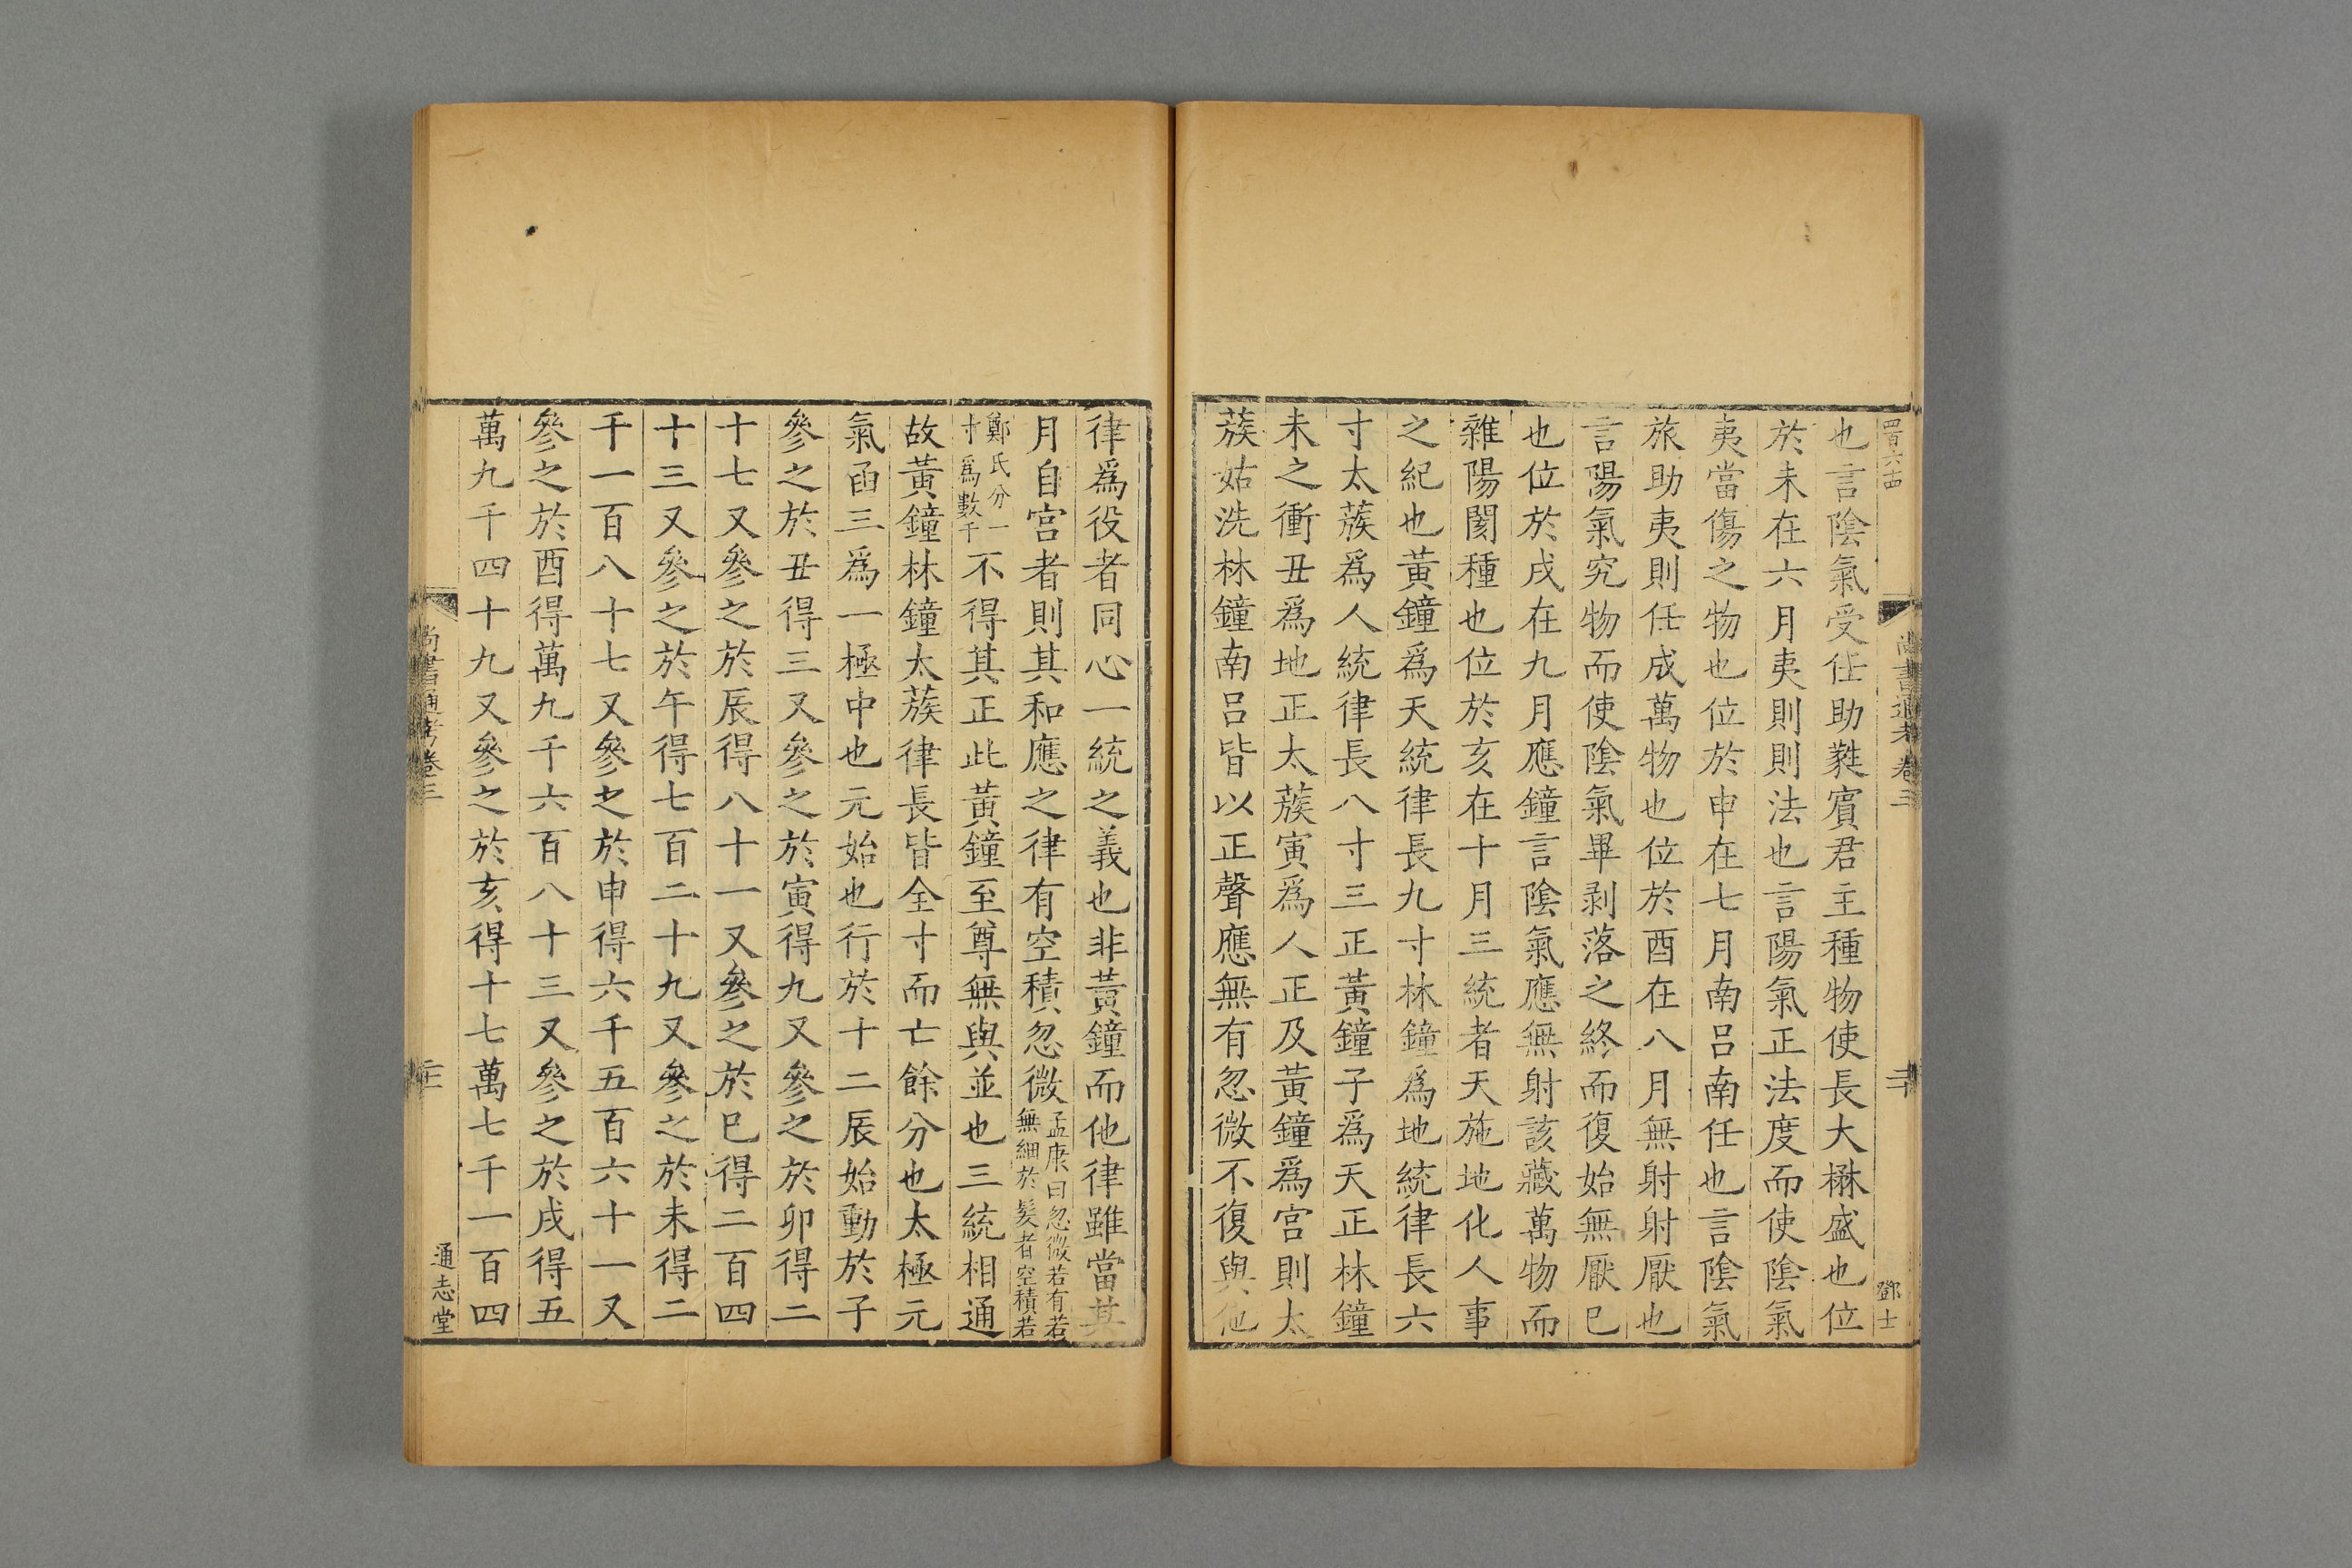 四百六十四
尚書通考卷三
二十
鄧士
也言陰氣受任助蕤賓君主種物使長大楙盛也位
於未在六月夷則則法也言陽氣正法度而使陰氣
夷當傷之物也位於申在七月南呂南任也言陰氣
旅助夷則任成萬物也位於酉在八月無射射厭也
言陽氣究物而使陰氣畢剥落之終而復始無厭已
也位於戌在九月應鐘言陰氣應無射該藏萬物而
雜陽閡種也位於亥在十月三統者天施地化人事
之紀也黃鐘爲天統律長九寸林鐘爲地統律長六
寸太蔟爲人統律長八寸三正黃鐘子爲天正林鐘
未之衝丑爲地正太蔟寅爲人正及黃鐘爲宮則太
蔟姑洗林鐘南呂皆以正聲應無有忽微不復與他
律爲役者同心一統之義也非黃鐘而他律雖當其
月自宮者則其和應之律有空積忽微
孟康曰忽微若有若
無細於髮者空積若
鄭氏分一
寸爲數千
不得其正此黃鐘至尊無與並也三統相通
故黃鐘林鐘太蔟律長皆全寸而亡餘分也太極元
氣函三爲一極中也元始也行於十二辰始動於子
參之於丑得三又參之於寅得九又參之於卯得二
十七又參之於辰得八十一又參之於巳得二百四
十三又參之於午得七百二十九又參之於未得二
千一百八十七又參之於申得六千五百六十一又
參之於酉得萬九千六百八十三又參之於戌得五
萬九千四十九又參之於亥得十七萬七千一百四
尚書通考卷三
通志堂